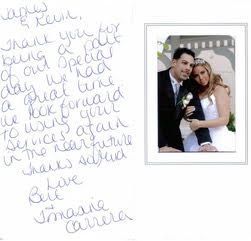 & Kevin,
Thank you for
being a part
of our special
day we had
a great time
we look forward
to using your
services again
in the near future
Thanks
Love
Carrera